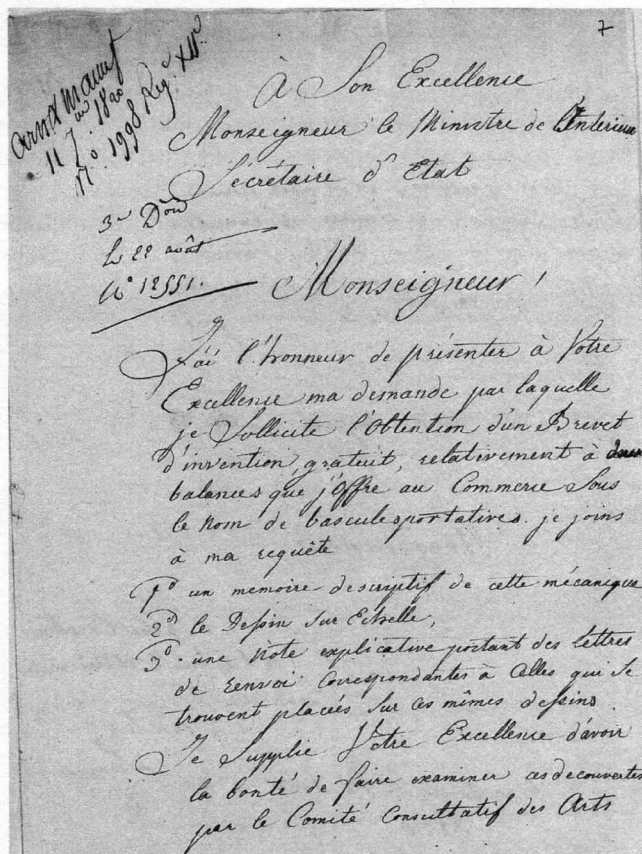 7
11 7bre 1820
N.° 1998 Reg.e
À Son Excellence
Monseigneur le Ministre de l'Interieur
Secrétaire d'Etat
3e Don
le 22 août
N° 12551.
Monseigneur !
J'ai l'honneur de présenter à Votre
Excellence ma demande par laquelle
je Sollicite l'Obtention d'un Brevet
d'invention, gratuit, relativement à
balances que j'offre au Commerce Sous
le nom de bascules portatives. je joins
à ma requête
1° un memoire descriptif de cette mécanique
2° le Dessin sur Echelle,
3° une Note explicative portant des lettres
de renvoi Correspondantes à Celles qui se
trouvent placées sur ces mêmes dessins.
Je Supplie Votre Excellence d'avoir
la bonté de faire examiner ces decouvertes
par le Comité Consultatif des Arts